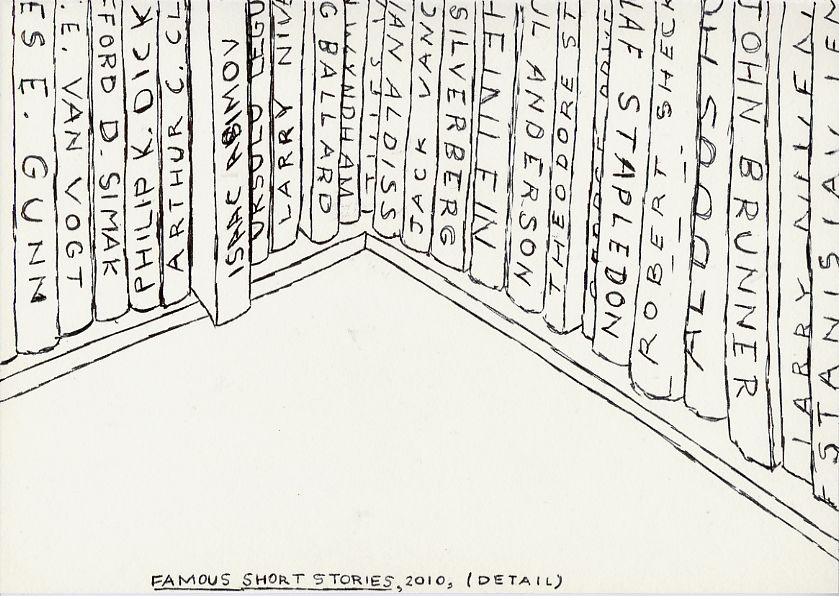 ES E. GUNN
.E. VAN VOGT
FFORD D. SIMAK
PHILIP K. DICK
ARTHUR C. CL
ISAAC ASIMOV
URSULO LEGU
LARRY NIV
G BALLARD
WYNDHAM
IAN ALDISS
JACK VANC
SILVERBERG
HEINLEIN
UL ANDERSON
THEODORE ST
LAF STAPLEDON
ROBERT SHECK
ALDOUS H
JOHN BRUNNER
LARRY NIVEN
STANISLAV LEM
FAMOUS SHORT STORIES, 2010, (DETAIL)